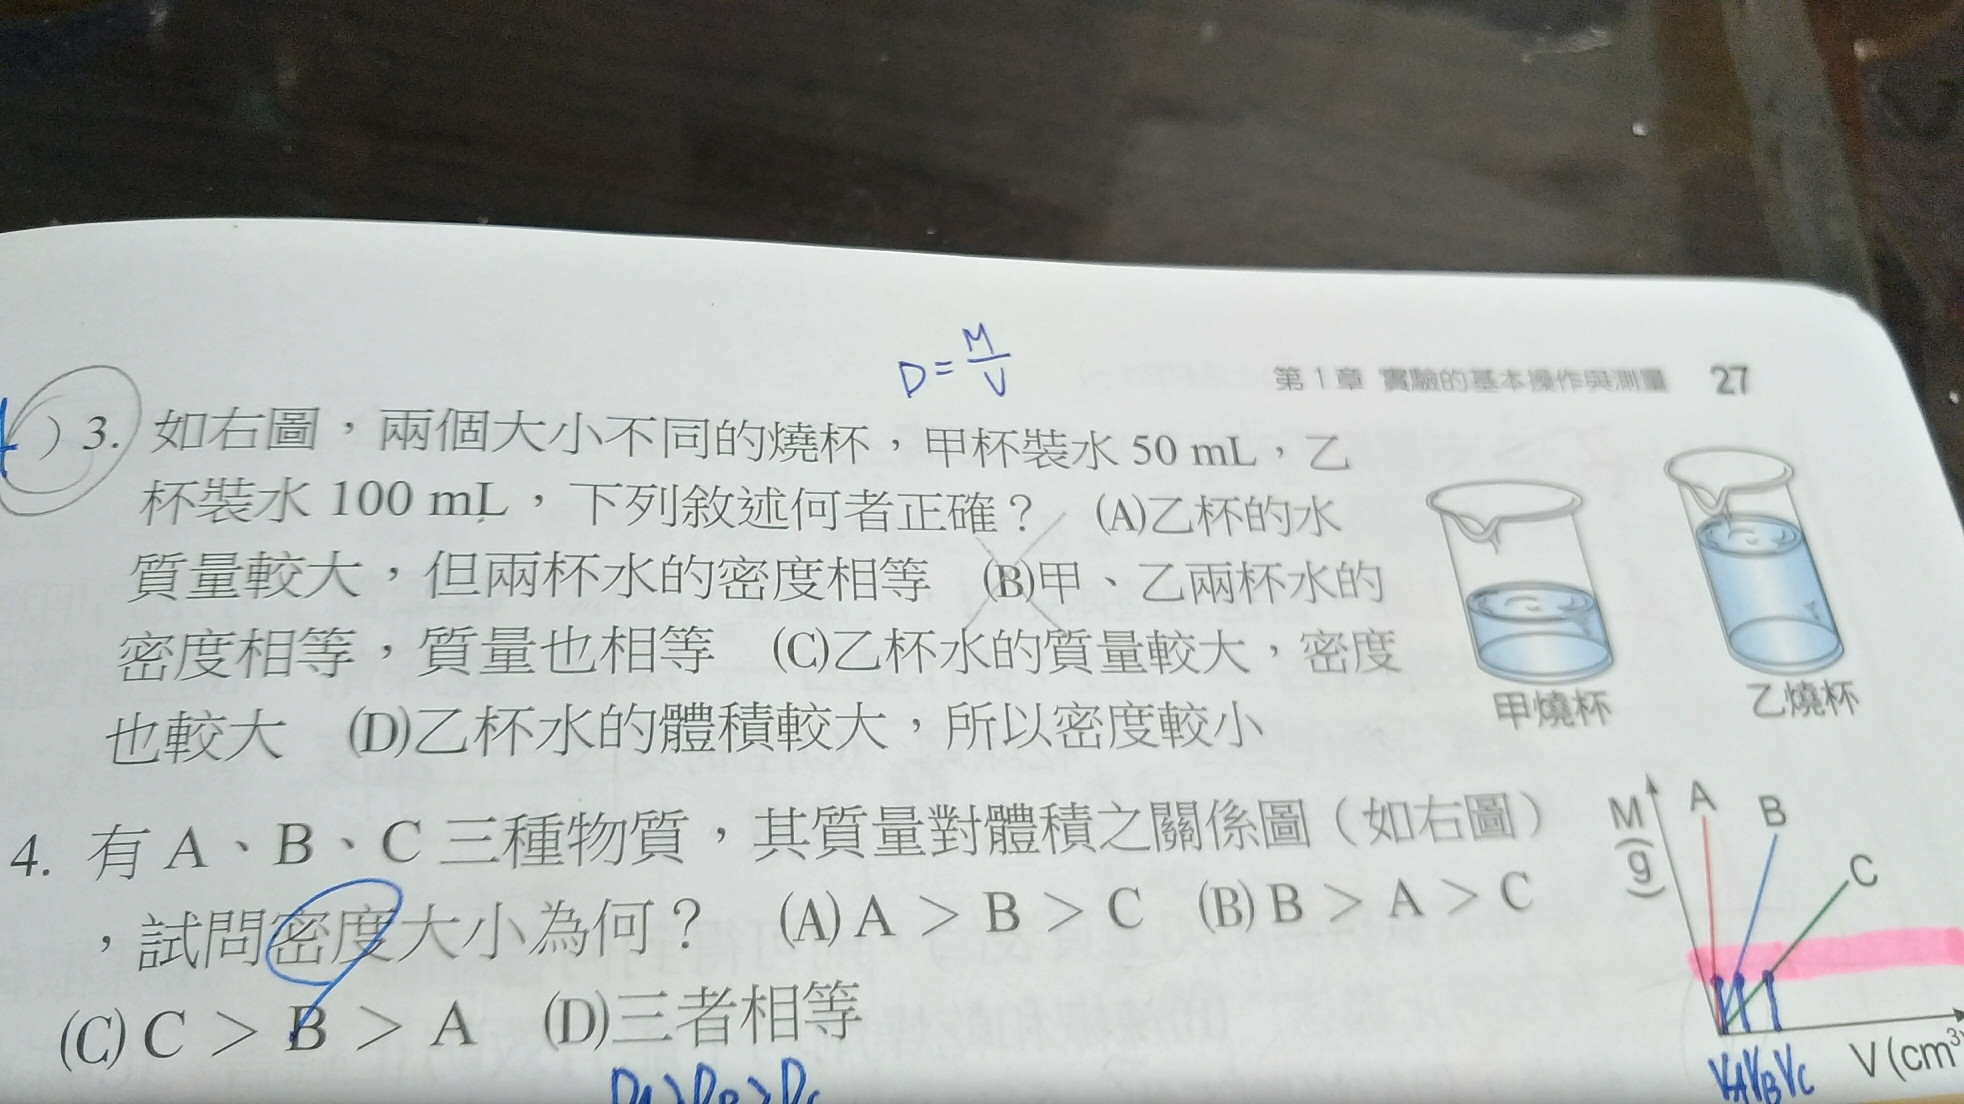 D = M/V
第1章 實驗的基本操作與測量 27
) 3. 如右圖，兩個大小不同的燒杯，甲杯裝水 50 mL，乙
杯裝水 100 mL，下列敘述何者正確？ (A)乙杯的水
質量較大，但兩杯水的密度相等 (B)甲、乙兩杯水的
密度相等，質量也相等 (C)乙杯水的質量較大，密度
也較大 (D)乙杯水的體積較大，所以密度較小
甲燒杯
乙燒杯
4. 有 A、B、C 三種物質，其質量對體積之關係圖（如右圖）
，試問密度大小為何？ (A) A > B > C (B) B > A > C
(C) C > B > A (D)三者相等
M (g)
A
B
C
V (cm³
VA VB VC
DA > DB > DC